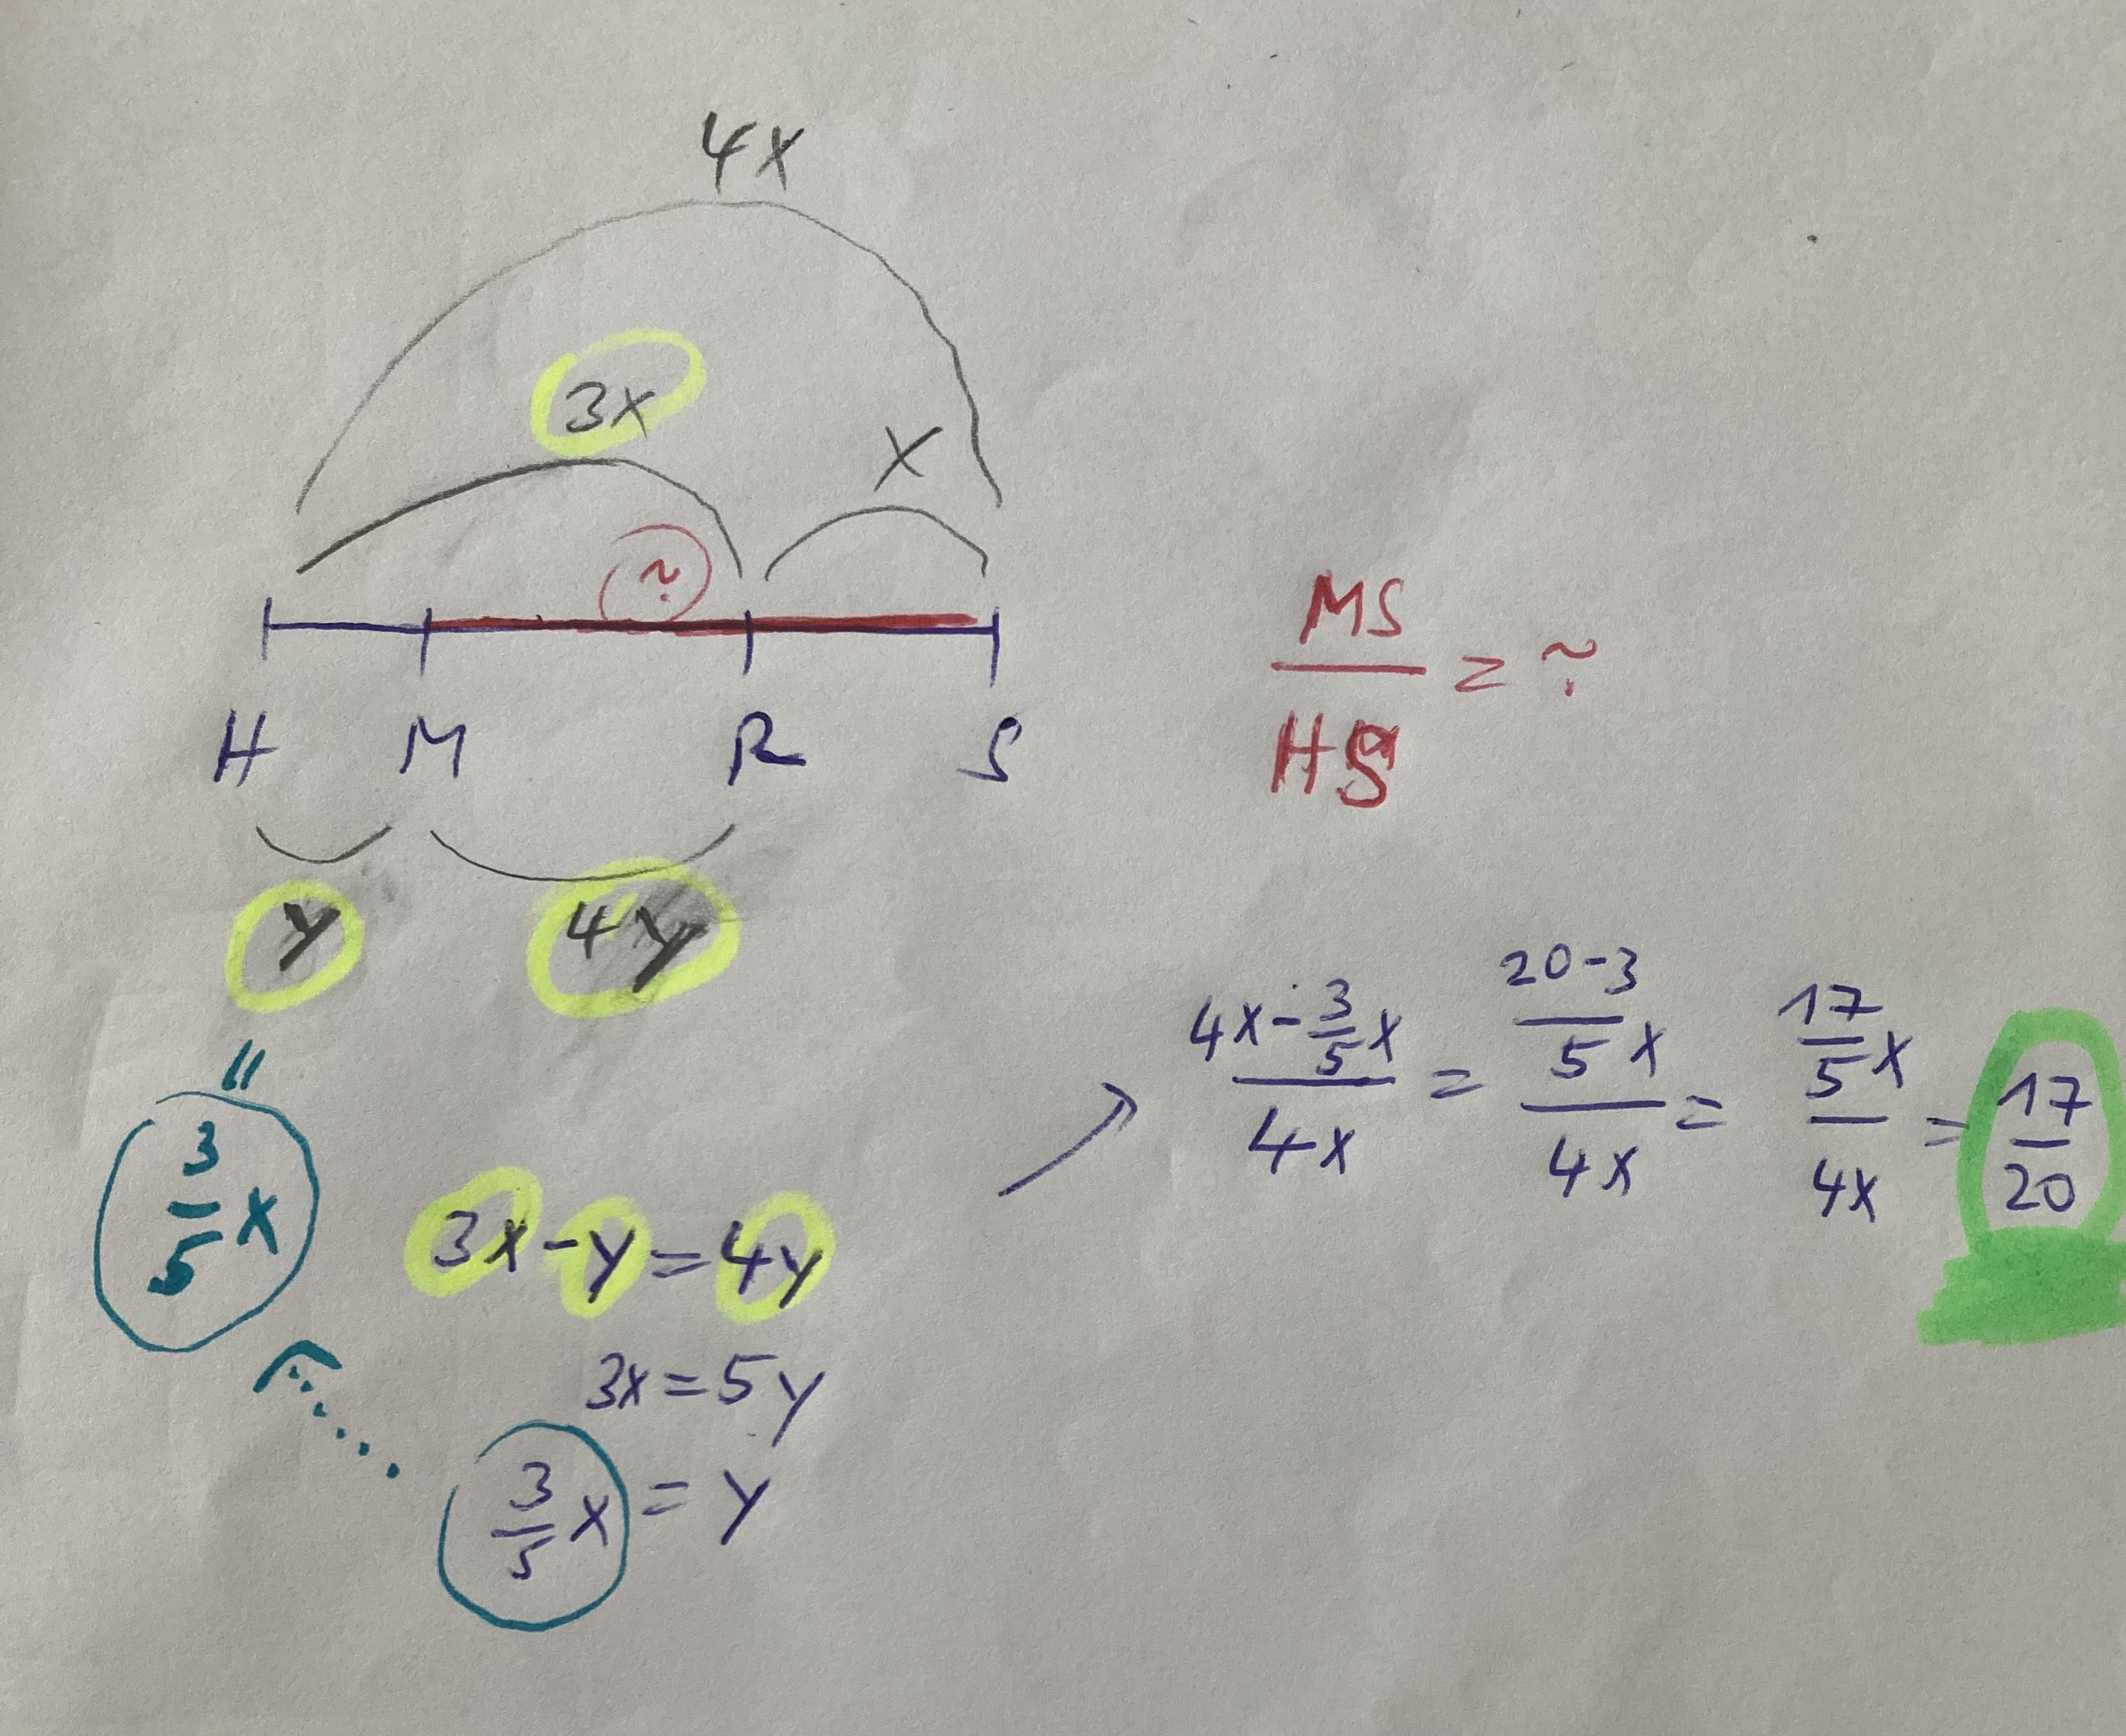 4x
3x
x
?
H M R S
MS/HS = ?
y 4y
=
3/5 x
3x - y = 4y
3x = 5y
3/5 x = y
(4x - 3/5 x)/(4x) = ((20-3)/5 x)/(4x) = (17/5 x)/(4x) = 17/20